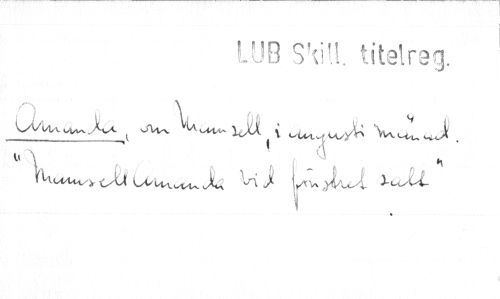 LUB Skill. titelreg.
Amanda, en Mamsell, i augusti månad.
"Mamsell Amanda vid fönstret satt"